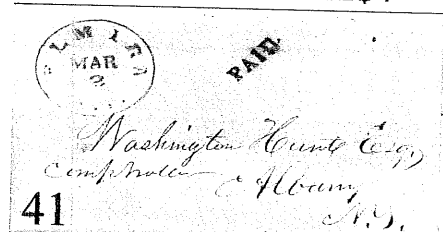 ELMIRA
MAR
2
PAID
Washington Hunt Esq,
Comptroller
Albany
N.Y.
41